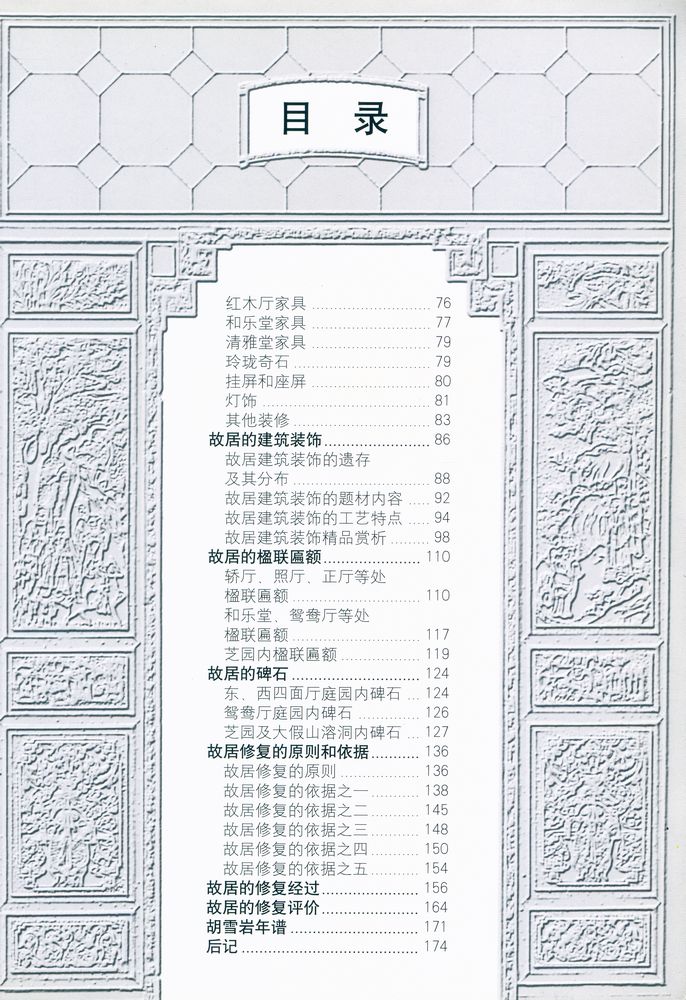 目 录
红木厅家具 76
和乐堂家具 77
清雅堂家具 79
玲珑奇石 79
挂屏和座屏 80
灯饰 81
其他装修 83
故居的建筑装饰 86
故居建筑装饰的遗存
及其分布 88
故居建筑装饰的题材内容 92
故居建筑装饰的工艺特点 94
故居建筑装饰精品赏析 98
故居的楹联匾额 110
轿厅、照厅、正厅等处
楹联匾额 110
和乐堂、鸳鸯厅等处
楹联匾额 117
芝园内楹联匾额 119
故居的碑石 124
东、西四面厅庭园内碑石 124
鸳鸯厅庭园内碑石 126
芝园及大假山溶洞内碑石 127
故居修复的原则和依据 136
故居修复的原则 136
故居修复的依据之一 138
故居修复的依据之二 145
故居修复的依据之三 148
故居修复的依据之四 150
故居修复的依据之五 154
故居的修复经过 156
故居的修复评价 164
胡雪岩年谱 171
后记 174